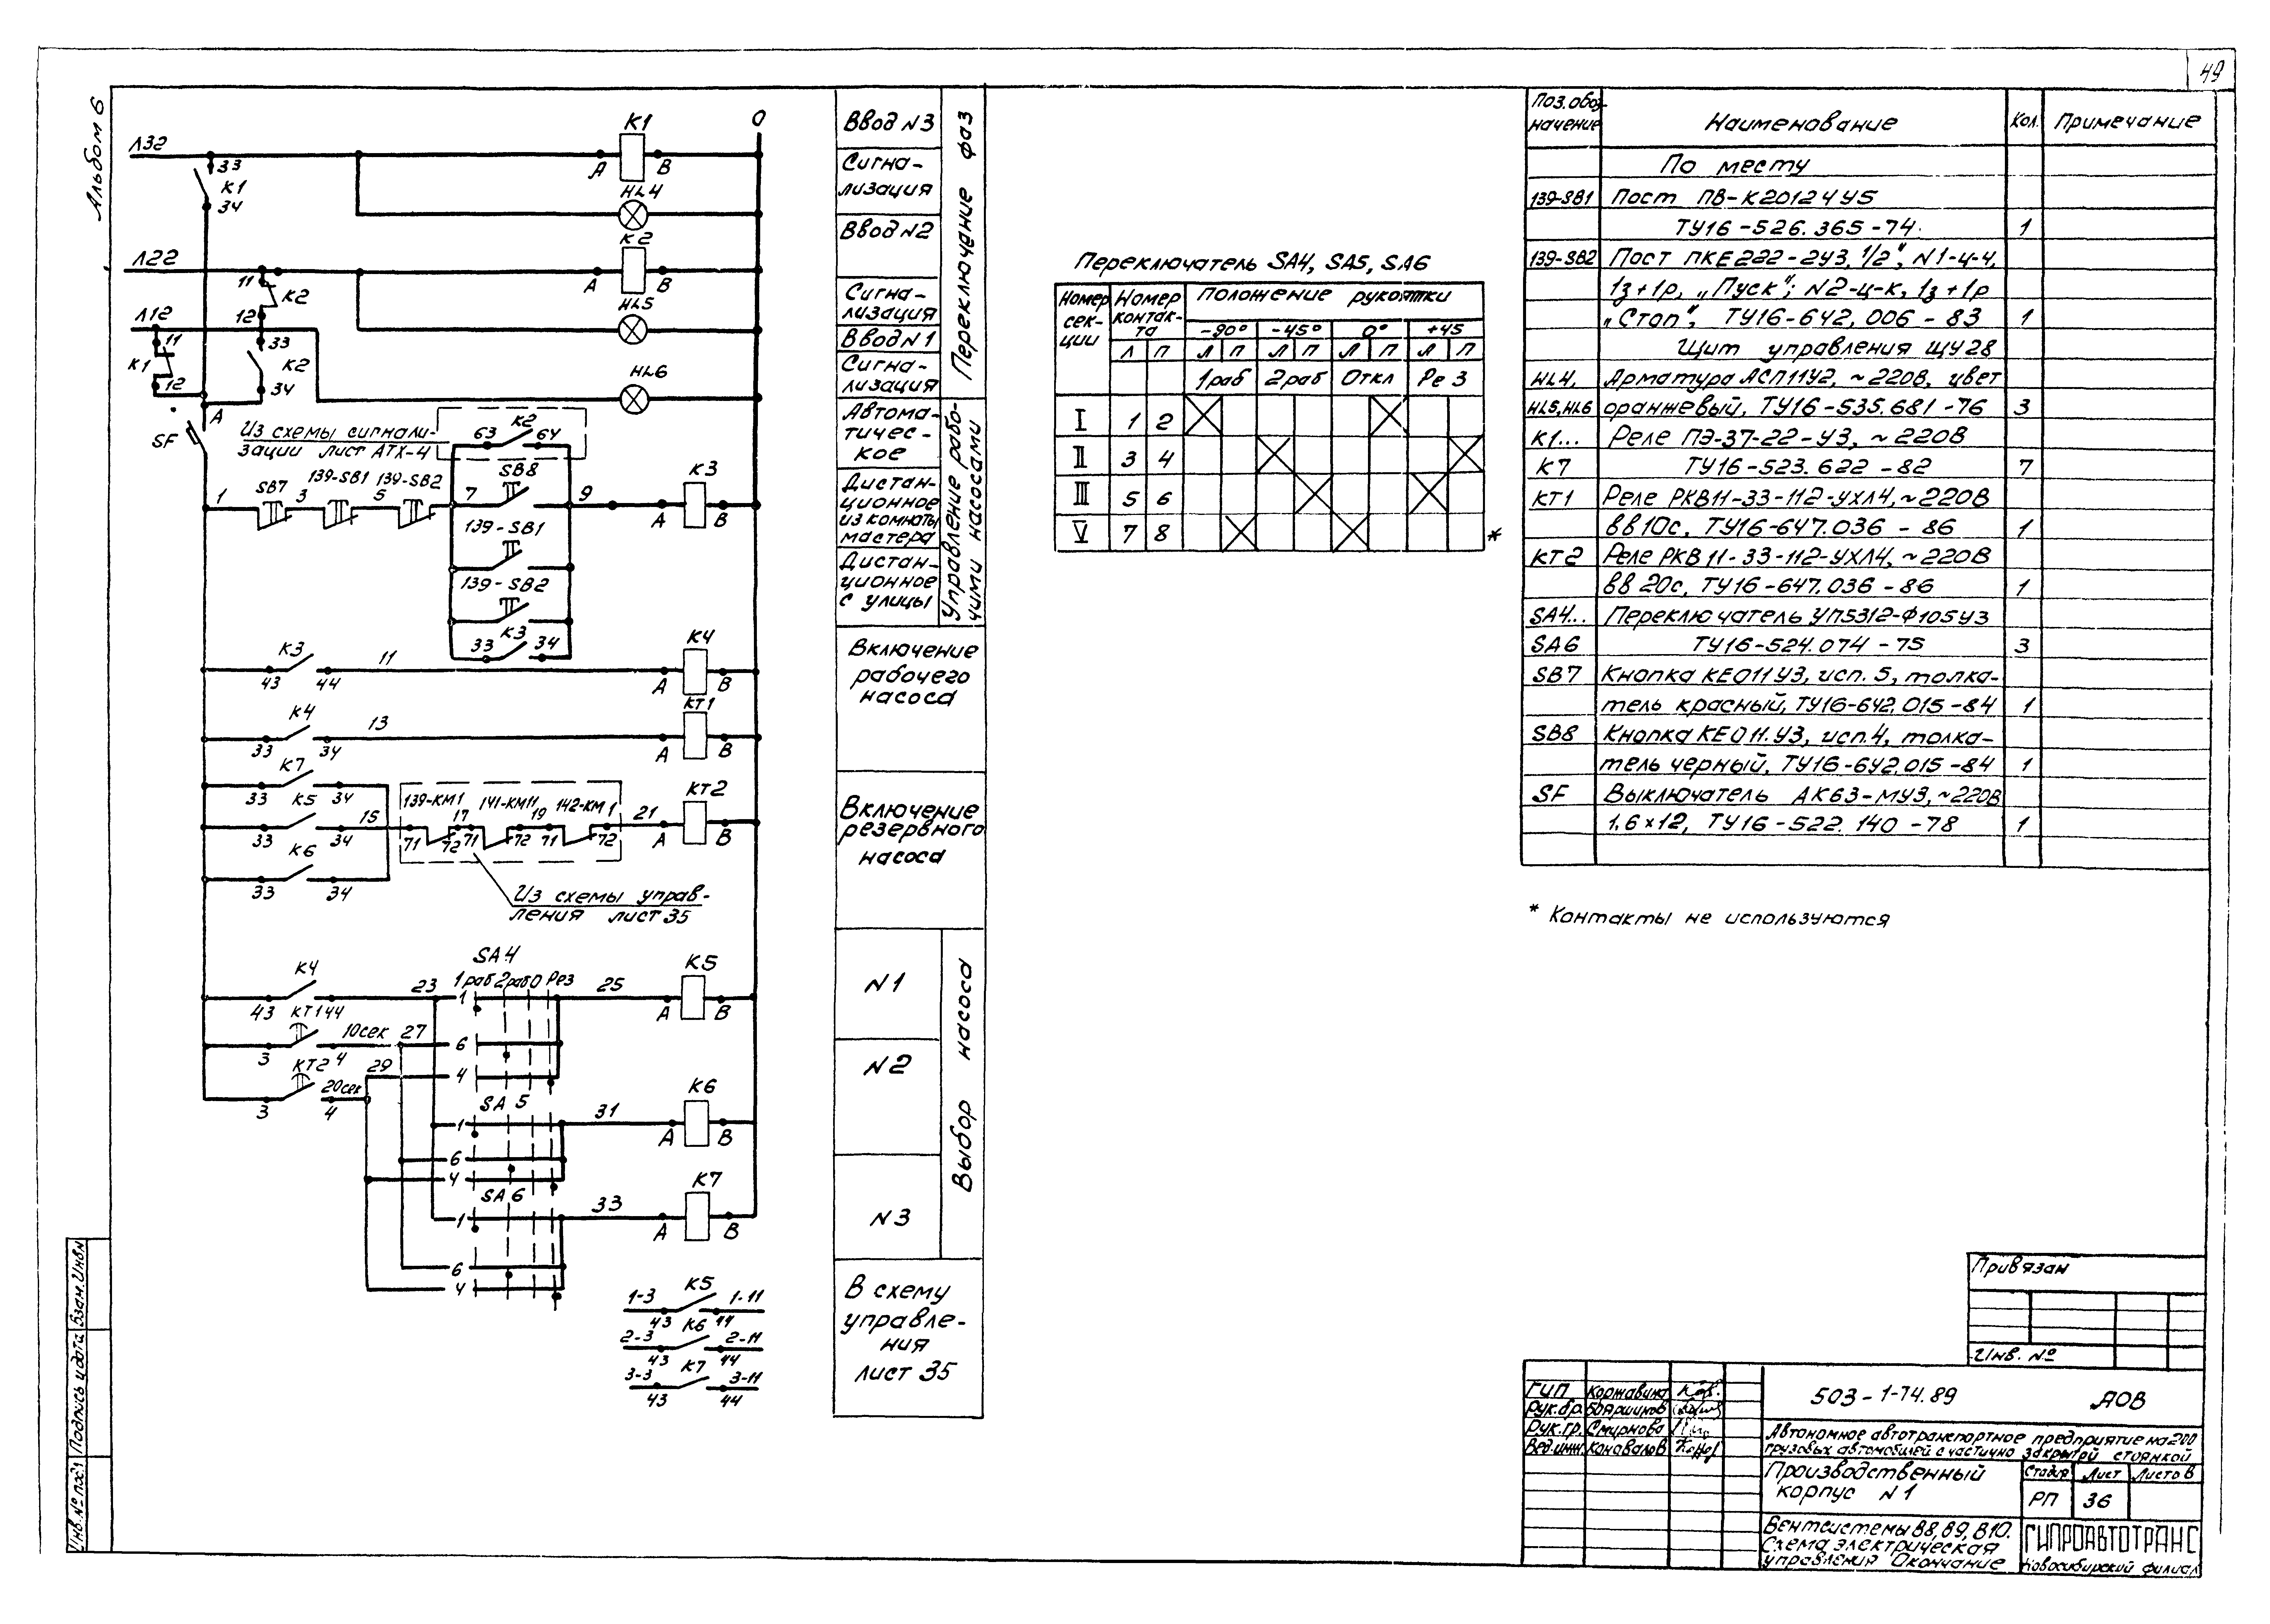 49
Альбом 6
Л32
33
К1
34
А
К1
В
0
HL4
Л22
11
К2
12
А
К2
В
HL5
Л12
11
К1
12
33
К2
34
HL6
А
SF
Из схемы сигнали-
зации лист АТХ-4
63
К2
64
1
SB7
3
139-SB1
5
139-SB2
7
SB8
9
А
К3
В
139-SB1
139-SB2
33
К3
34
К3
43
44
11
А
К4
В
К4
33
34
13
А
КТ1
В
К7
33
34
К5
33
34
15
К6
33
34
139-КМ1
71
72
17
141-КМ11
71
72
19
142-КМ1
71
72
21
А
КТ2
В
Из схемы управ-
ления лист 35
К4
43
44
23
SA4
1раб 2раб 0 Рез
1
25
А
К5
В
КТ1
3
4
10сек
27
6
КТ2
3
4
20сек
29
4
SA5
1
31
А
К6
В
6
4
SA6
1
33
А
К7
В
6
4
1-3
К5
1-11
43
44
2-3
К6
2-11
43
44
3-3
К7
3-11
43
44
Ввод N3
Сигна-
лизация
Ввод N2
Сигна-
лизация
Ввод N1
Сигна-
лизация
Переключение фаз
Автома-
тичес-
кое
Дистан-
ционное
из комнаты
мастера
Дистан-
ционное
с улицы
Управление рабо-
чими насосами
Включение
рабочего
насоса
Включение
резервного
насоса
N1
N2
N3
Выбор насоса
В схему
управле-
ния
лист 35
Переключатель SA4, SA5, SA6
Номер
сек-
ции
Номер
контак-
та
Положение рукоятки
-90° -45° 0° +45
Л П Л П Л П Л П Л П
1раб 2раб Откл Рез
I 1 2
II 3 4
III 5 6
V 7 8
*
Поз. обоз-
начение
Наименование
Кол.
Примечание
По месту
139-SB1 Пост ПВ-К20124У5
ТУ16-526.365-74. 1
139-SB2 Пост ПКЕ222-2У3, 1/2", N1-ц-ч,
1з+1р, „Пуск"; N2-ц-к, 1з+1р
„Стоп", ТУ16-642.006-83 1
Щит управления ЩУ28
HL4, Арматура АСЛ11У2, ~220В, цвет
HL5, HL6 оранжевый, ТУ16-535.681-76 3
К1... Реле ПЭ-37-22-У3, ~220В
К7 ТУ16-523.622-82 7
КТ1 Реле РКВ11-33-112-УХЛ4, ~220В
вв10с, ТУ16-647.036-86 1
КТ2 Реле РКВ11-33-112-УХЛ4, ~220В
вв 20с, ТУ16-647.036-86 1
SA4... Переключатель УП5312-Ф105У3
SA6 ТУ16-524.074-75 3
SB7 Кнопка КЕ011У3, исп. 5, толка-
тель красный, ТУ16-642.015-84 1
SB8 Кнопка КЕ011.У3, исп.4, толка-
тель черный, ТУ16-642.015-84 1
SF Выключатель АК63-МУ3, ~220В
1.6×12, ТУ16-522.140-78 1
* Контакты не используются
Привязан
Инв. №
ГИП Коржавина
Рук.бр. Бояршинов
Рук.гр. Смирнова
Вед.инж. Коновалов
503-1-74.89 АОВ
Автономное автотранспортное предприятие на 200
грузовых автомобилей с частично закрытой стоянкой
Производственный
корпус N1
Стадия Лист Листов
РП 36
Вентсистемы В8, В9, В10.
Схема электрическая
управления Окончание
ГИПРОАВТОТРАНС
Новосибирский филиал
Инв.№ подл Подпись и дата Взам.Инв.№